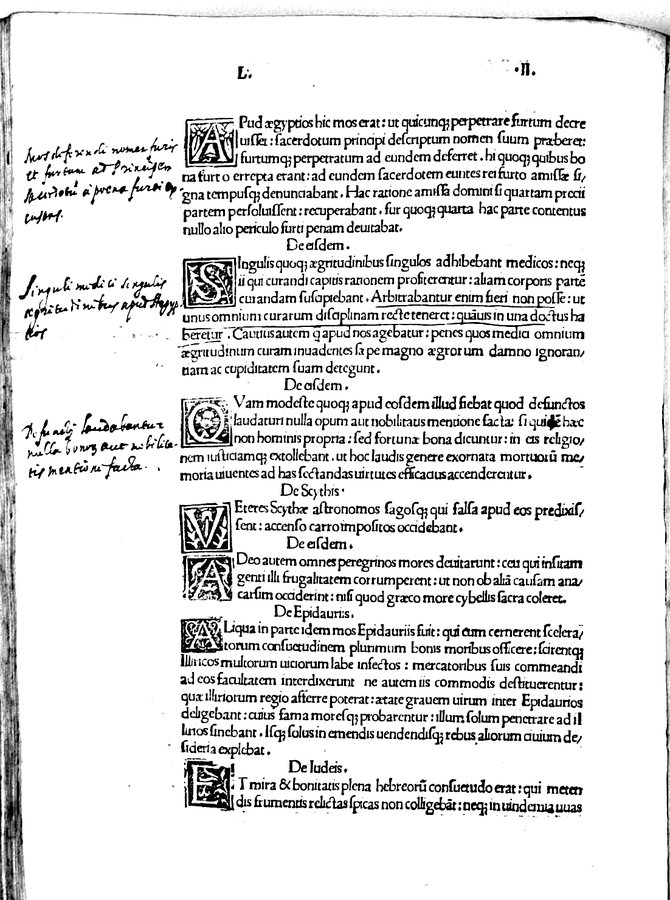 L. .II.
APud ægyptios hic mos erat: ut quicunq; perpetrare furtum decre
uisset: sacerdotum principi descriptum nomen suum præberet:
furtumq; perpetratum ad eundem deferret. hi quoq; quibus bo
na furto errepta erant: ad eundem sacerdotem euntes rei furto amissæ si/
gna tempusq; denunciabant. Hac ratione amissa domini si quartam precii
partem persoluissent: recuperabant. fur quoq; quarta hac parte contentus
nullo alio periculo furti penam deuitabat.
De eisdem.
SIngulis quoq; ægritudinibus singulos adhibebant medicos: neq;
ii qui curandi capitis rationem profiterentur: aliam corporis partē
curandam suscipiebant. Arbitrabantur enim fieri non posse: ut
unus omnium curarum disciplinam recte teneret: quāuis in una doctus ha
beretur. Cautius autem q̄ apud nos agebatur: penes quos medici omnium
ægritudinum curam inuadentes sæpe magno ægrorum damno ignoran/
tiam ac cupiditatem suam detegunt.
De eisdem.
QVam modeste quoq; apud eosdem illud fiebat quod defunctos
laudaturi nulla opum aut nobilitatis mentione facta: si quidē hæc
non hominis propria: sed fortunæ bona dicuntur: in eis religio/
nem iusticiamq; extollebant. ut hoc laudis genere exornata mortuorū me/
moria uiuentes ad has sectandas uirtutes efficacius accenderentur.
De Scythis.
VEteres Scythæ astronomos sagosq; qui falsa apud eos predixis/
sent: accenso carro impositos occidebant.
De eisdem.
ADeo autem omnes peregrinos mores deuitarunt: ceu qui insitam
genti illi frugalitatem corrumperent: ut non ob aliā causam ana/
carsim occiderint: nisi quod græco more cybellis sacra coleret.
De Epidauriis.
ALiqua in parte idem mos Epidauriis fuit: qui cum cernerent scelera/
torum consuetudinem plurimum bonis moribus officere: scirentq;
Illiricos multorum uiciorum labe infectos: mercatoribus suis commeandi
ad eos facultatem interdixerunt ne autem iis commodis destituerentur:
quæ illiriorum regio afferre poterat: ætate grauem uirum inter Epidaurios
deligebant: cuius fama moresq; probarentur: illum solum penetrare ad il
lirios sinebant. Isq; solus in emendis uendendisq; rebus aliorum ciuium de/
sideria explebat.
De Iudeis.
ET mira & bonitatis plena hebreorū consuetudo erat: qui meten
dis frumentis relictas spicas non colligebāt: neq; in uindemia uuas
furis
et furtum ad
Singuli medici singulis
ægritudinibus apud Ægyp
tios
laudabantur
nulla bonorum aut nobilita
tis mentione facta.